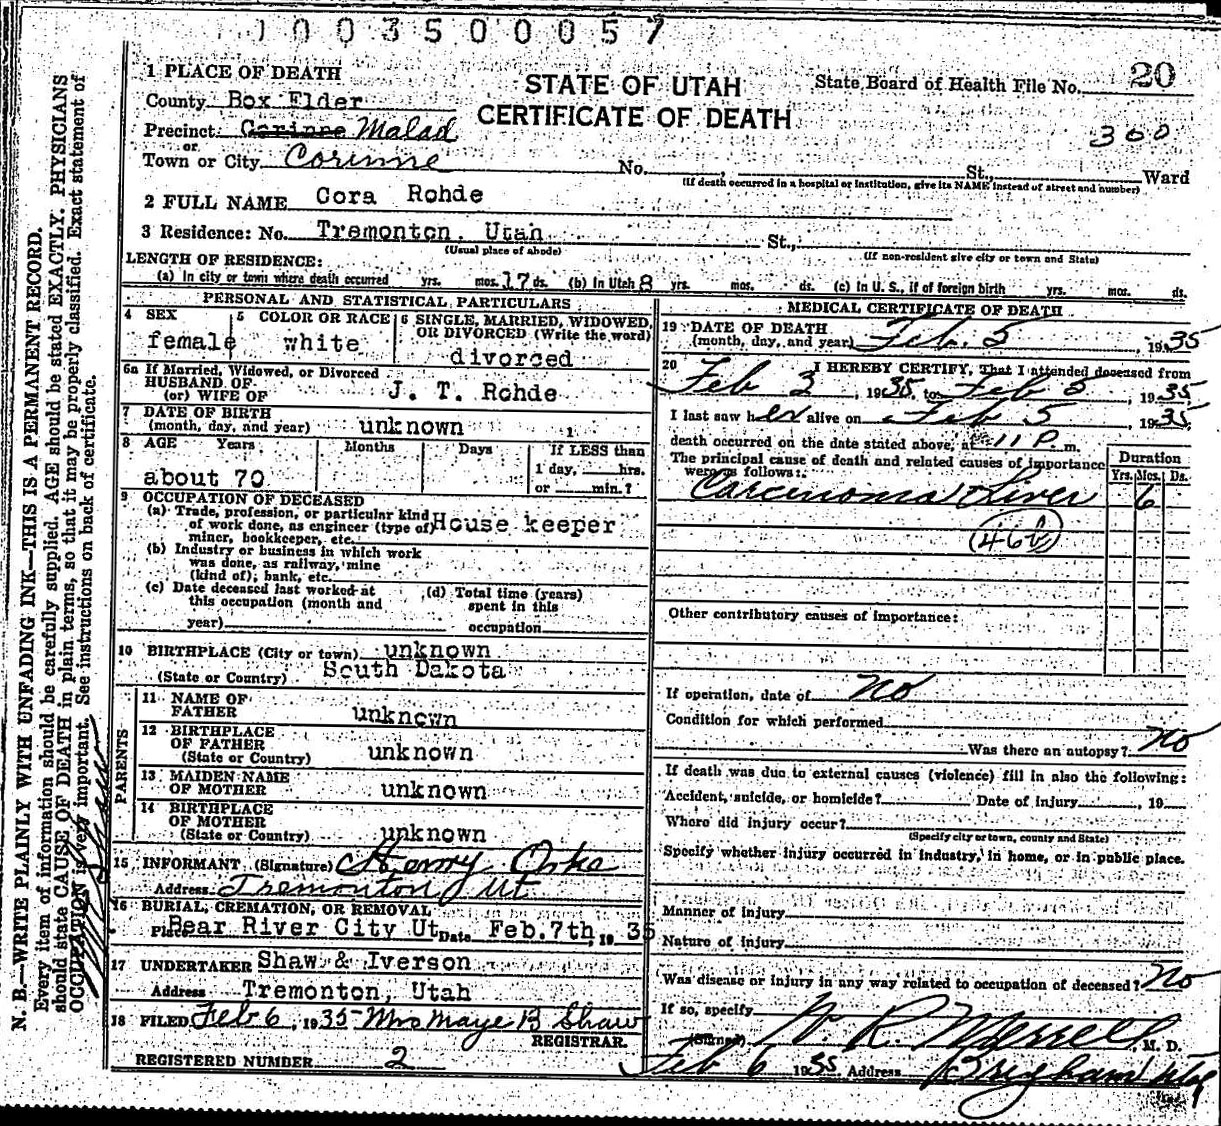 1003500057
1 PLACE OF DEATH
STATE OF UTAH
State Board of Health File No. 20
County Box Elder
CERTIFICATE OF DEATH
Precinct Corinne Malad
300
or
Town or City Corinne No. St., Ward
(If death occurred in a hospital or institution, give its NAME instead of street and number)
2 FULL NAME Cora Rohde
3 Residence: No. Tremonton. Utah St.,
(Usual place of abode)
(If non-resident give city or town and State)
LENGTH OF RESIDENCE:
(a) In city or town where death occurred yrs. mos. 17 ds. (b) In Utah 8 yrs. mos. ds. (c) In U. S., if of foreign birth yrs. mos. ds.
PERSONAL AND STATISTICAL PARTICULARS
4 SEX
female
5 COLOR OR RACE
white
6 SINGLE, MARRIED, WIDOWED,
OR DIVORCED (Write the word)
divorced
6a If Married, Widowed, or Divorced
HUSBAND OF
(or) WIFE OF J. T. Rohde
7 DATE OF BIRTH
(month, day, and year) unknown
8 AGE Years Months Days If LESS than
1 day, hrs.
about 70
or min.?
9 OCCUPATION OF DECEASED
(a) Trade, profession, or particular kind
of work done, as engineer (type of) House keeper
miner, bookkeeper, etc.
(b) Industry or business in which work
was done, as railway, mine
(kind of); bank, etc.
(c) Date deceased last worked at
this occupation (month and
year)
(d) Total time (years)
spent in this
occupation
10 BIRTHPLACE (City or town) unknown
(State or Country) South Dakota
PARENTS
11 NAME OF
FATHER unknown
12 BIRTHPLACE
OF FATHER
(State or Country) unknown
13 MAIDEN NAME
OF MOTHER unknown
14 BIRTHPLACE
OF MOTHER
(State or Country) unknown
15 INFORMANT (Signature) Henry
Address Tremonton Ut
16 BURIAL, CREMATION, OR REMOVAL
Place Bear River City Ut Date Feb. 7th, 19 35
17 UNDERTAKER Shaw & Iverson
Address Tremonton, Utah
18 FILED Feb 6, 1935 Mrs Maye B Shaw
REGISTRAR.
REGISTERED NUMBER 2
MEDICAL CERTIFICATE OF DEATH
19 DATE OF DEATH
(month, day, and year) Feb. 5, 1935
20 I HEREBY CERTIFY, That I attended deceased from
Feb 3, 1935, to Feb 5, 1935,
I last saw her alive on Feb 5, 1935,
death occurred on the date stated above, at 11 P. m.
The principal cause of death and related causes of importance
were as follows:
Duration
Yrs. Mos. Ds.
Carcinoma Liver 6
46b
Other contributory causes of importance:
If operation, date of no
Condition for which performed
Was there an autopsy? No
If death was due to external causes (violence) fill in also the following:
Accident, suicide, or homicide? Date of injury, 19
Where did injury occur?
(Specify city or town, county and State)
Specify whether injury occurred in industry, in home, or in public place.
Manner of injury
Nature of injury
Was disease or injury in any way related to occupation of deceased? No
If so, specify
(Signed) W. R. Merrell M. D.
Feb 6 1935 Address Brigham Utah
N. B.—WRITE PLAINLY WITH UNFADING INK—THIS IS A PERMANENT RECORD.
Every item of information should be carefully supplied. AGE should be stated EXACTLY. PHYSICIANS
should state CAUSE OF DEATH in plain terms, so that it may be properly classified. Exact statement of
OCCUPATION is very important. See instructions on back of certificate.